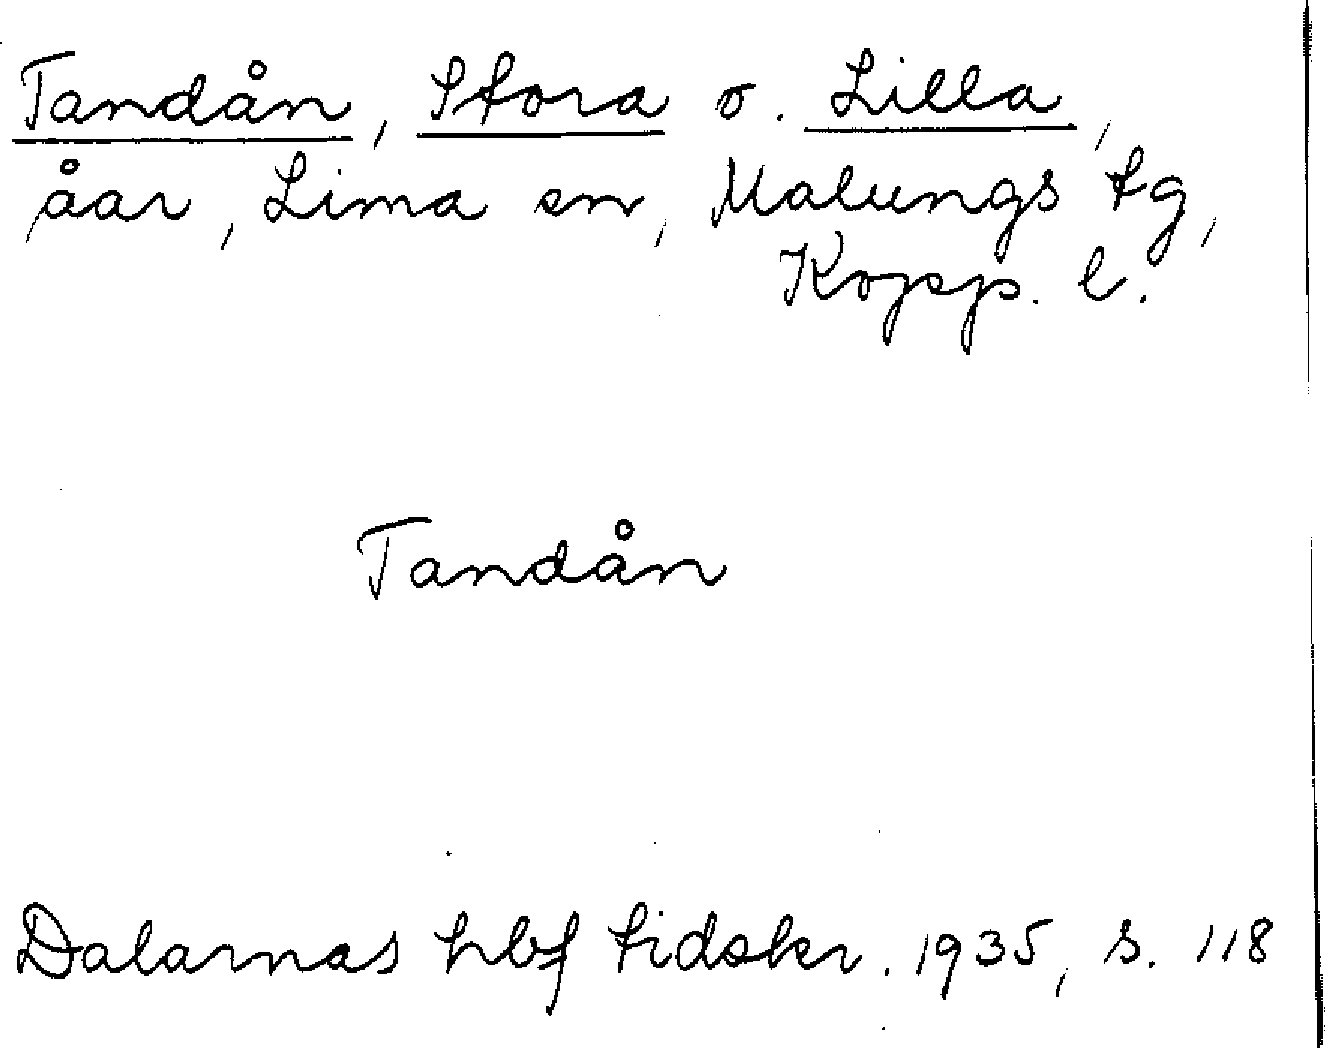 Tandån, Stora o. Lilla,
åar, Lima sn, Malungs tg,
Kopp. l.
Tandån
Dalarnas hbf tidskr. 1935, s. 118